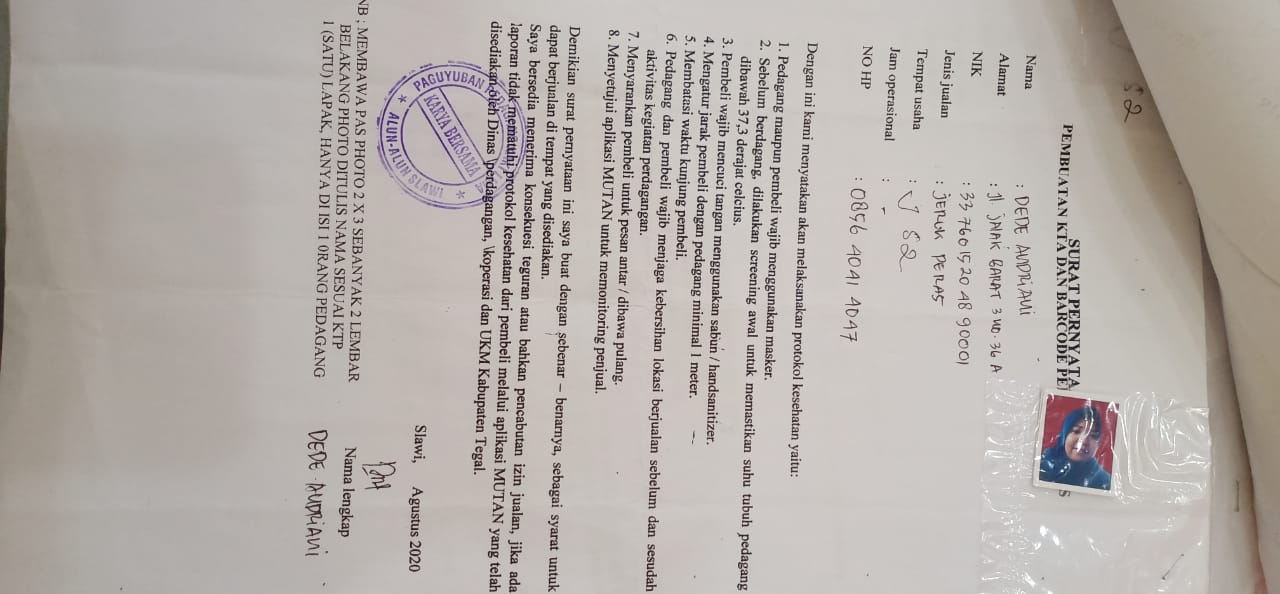 S2
SURAT PERNYATA
PEMBUATAN KTA DAN BARCODE PE
S
Nama : DEDE ANDRIANI
Alamat : Jl JALAK BARAT 3 NO 36 A
NIK : 33 7601 52048 90001
Jenis jualan : JERUK PERAS
Tempat usaha : V S2
Jam operasional : -
NO HP : 0856 4041 4047
Dengan ini kami menyatakan akan melaksanakan protokol kesehatan yaitu:
1. Pedagang maupun pembeli wajib menggunakan masker.
2. Sebelum berdagang, dilakukan screening awal untuk memastikan suhu tubuh pedagang
dibawah 37,3 derajat celcius.
3. Pembeli wajib mencuci tangan menggunakan sabun / handsanitizer.
4. Mengatur jarak pembeli dengan pedagang minimal 1 meter.
5. Membatasi waktu kunjung pembeli.
6. Pedagang dan pembeli wajib menjaga kebersihan lokasi berjualan sebelum dan sesudah
aktivitas kegiatan perdagangan.
7. Menyarankan pembeli untuk pesan antar / dibawa pulang.
8. Menyetujui aplikasi MUTAN untuk memonitoring penjual.
Demikian surat pernyataan ini saya buat dengan sebenar – benarnya, sebagai syarat untuk
dapat berjualan di tempat yang disediakan.
Saya bersedia menerima konsekuesi teguran atau bahkan pencabutan izin jualan, jika ada
laporan tidak mematuhi protokol kesehatan dari pembeli melalui aplikasi MUTAN yang telah
disediakan oleh Dinas perdagangan, koperasi dan UKM Kabupaten Tegal.
PAGUYUBAN
KARYA BERSAMA
ALUN-ALUN SLAWI
Slawi, Agustus 2020
Nama lengkap
DEDE ANDRIANI
NB ; MEMBAWA PAS PHOTO 2 X 3 SEBANYAK 2 LEMBAR
BELAKANG PHOTO DITULIS NAMA SESUAI KTP
1 (SATU) LAPAK, HANYA DI ISI 1 0RANG PEDAGANG